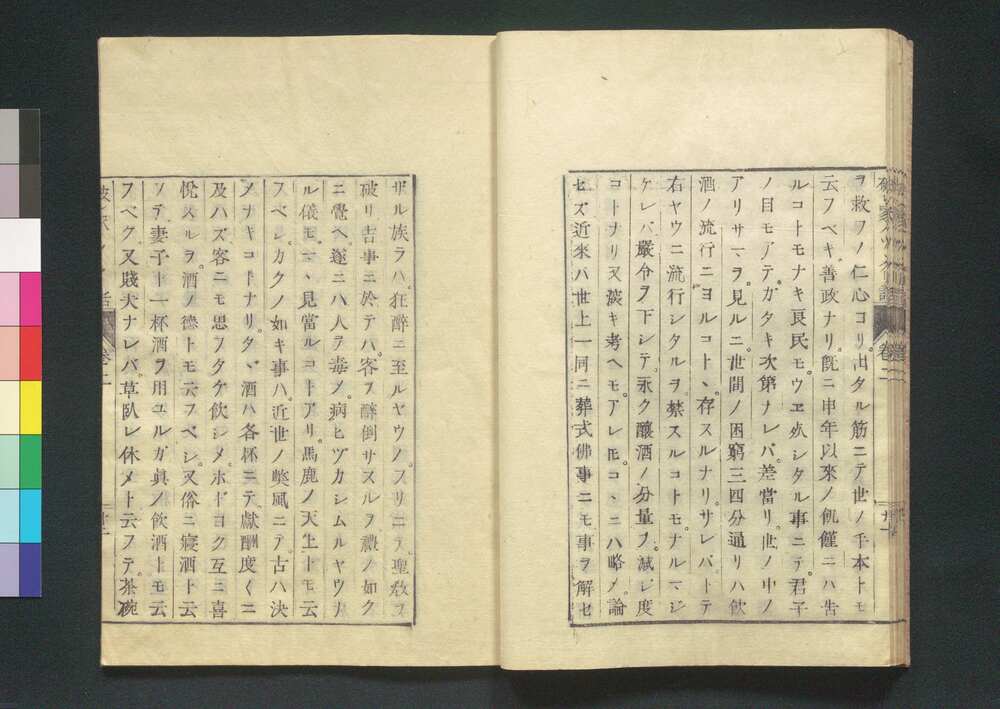 ヲ救フノ仁心ヨリ。出タル筋ニテ世ノ手本トモ
云フベキ善政ナリ。既ニ申年以來ノ飢饉ニハ告
ルコトモナキ良民モ。ウヱ死シタル事ニテ。君子
ノ目モアテ。ガタキ次第ナレバ。差當リ。世ノ中ノ
アリサマヽヲ。見ルニ。世間ノ困窮三四分通リハ飲
酒ノ流行ニヨルコトヽ。存スルナリ。サレバトテ
右ヤウニ流行シタルヲ。禁スルコトモ。ナルマジ
ケレバ。嚴令ヲ下シテ。永ク釀酒ノ分量ヲ。減シ度
コトナリ又深キ考ヘモ。アレ𪜈コヽニハ略ス。論
セズ近來ハ世上一同ニ葬式佛事ニモ事ヲ解セ
卷二
廿一
ザル族ラハ。狂醉ニ至ルヤウノ。フリニテ。聖敎ヲ
破リ吉事ニ於テハ。客ヲ醉倒サスルヲ。禮ノ如ク
ニ覺ヘ。遂ニハ人ヲ毒メ。病ヒヅカシムルヤウナ
ル儀モ。マヽ見當ルコトアリ。馬鹿ノ天上トモ云
フベシ。カクノ如キ事ハ。近世ノ弊風ニテ。古ハ決
メナキコトナリ。タヾ酒ハ各杯ニテ。獻酬度々ニ
及ハズ客ニモ思フタケ飲シメ。ホドヨク互ニ喜
悅スルヲ。酒ノ德トモ云フベシ。又俗ニ寢酒ト云
ソテ妻子ト一杯酒ヲ用ユルガ眞ノ飲酒トモ云
フベク又賤夫ナレバ。草臥レ休メト云フテ。茶碗
卷二